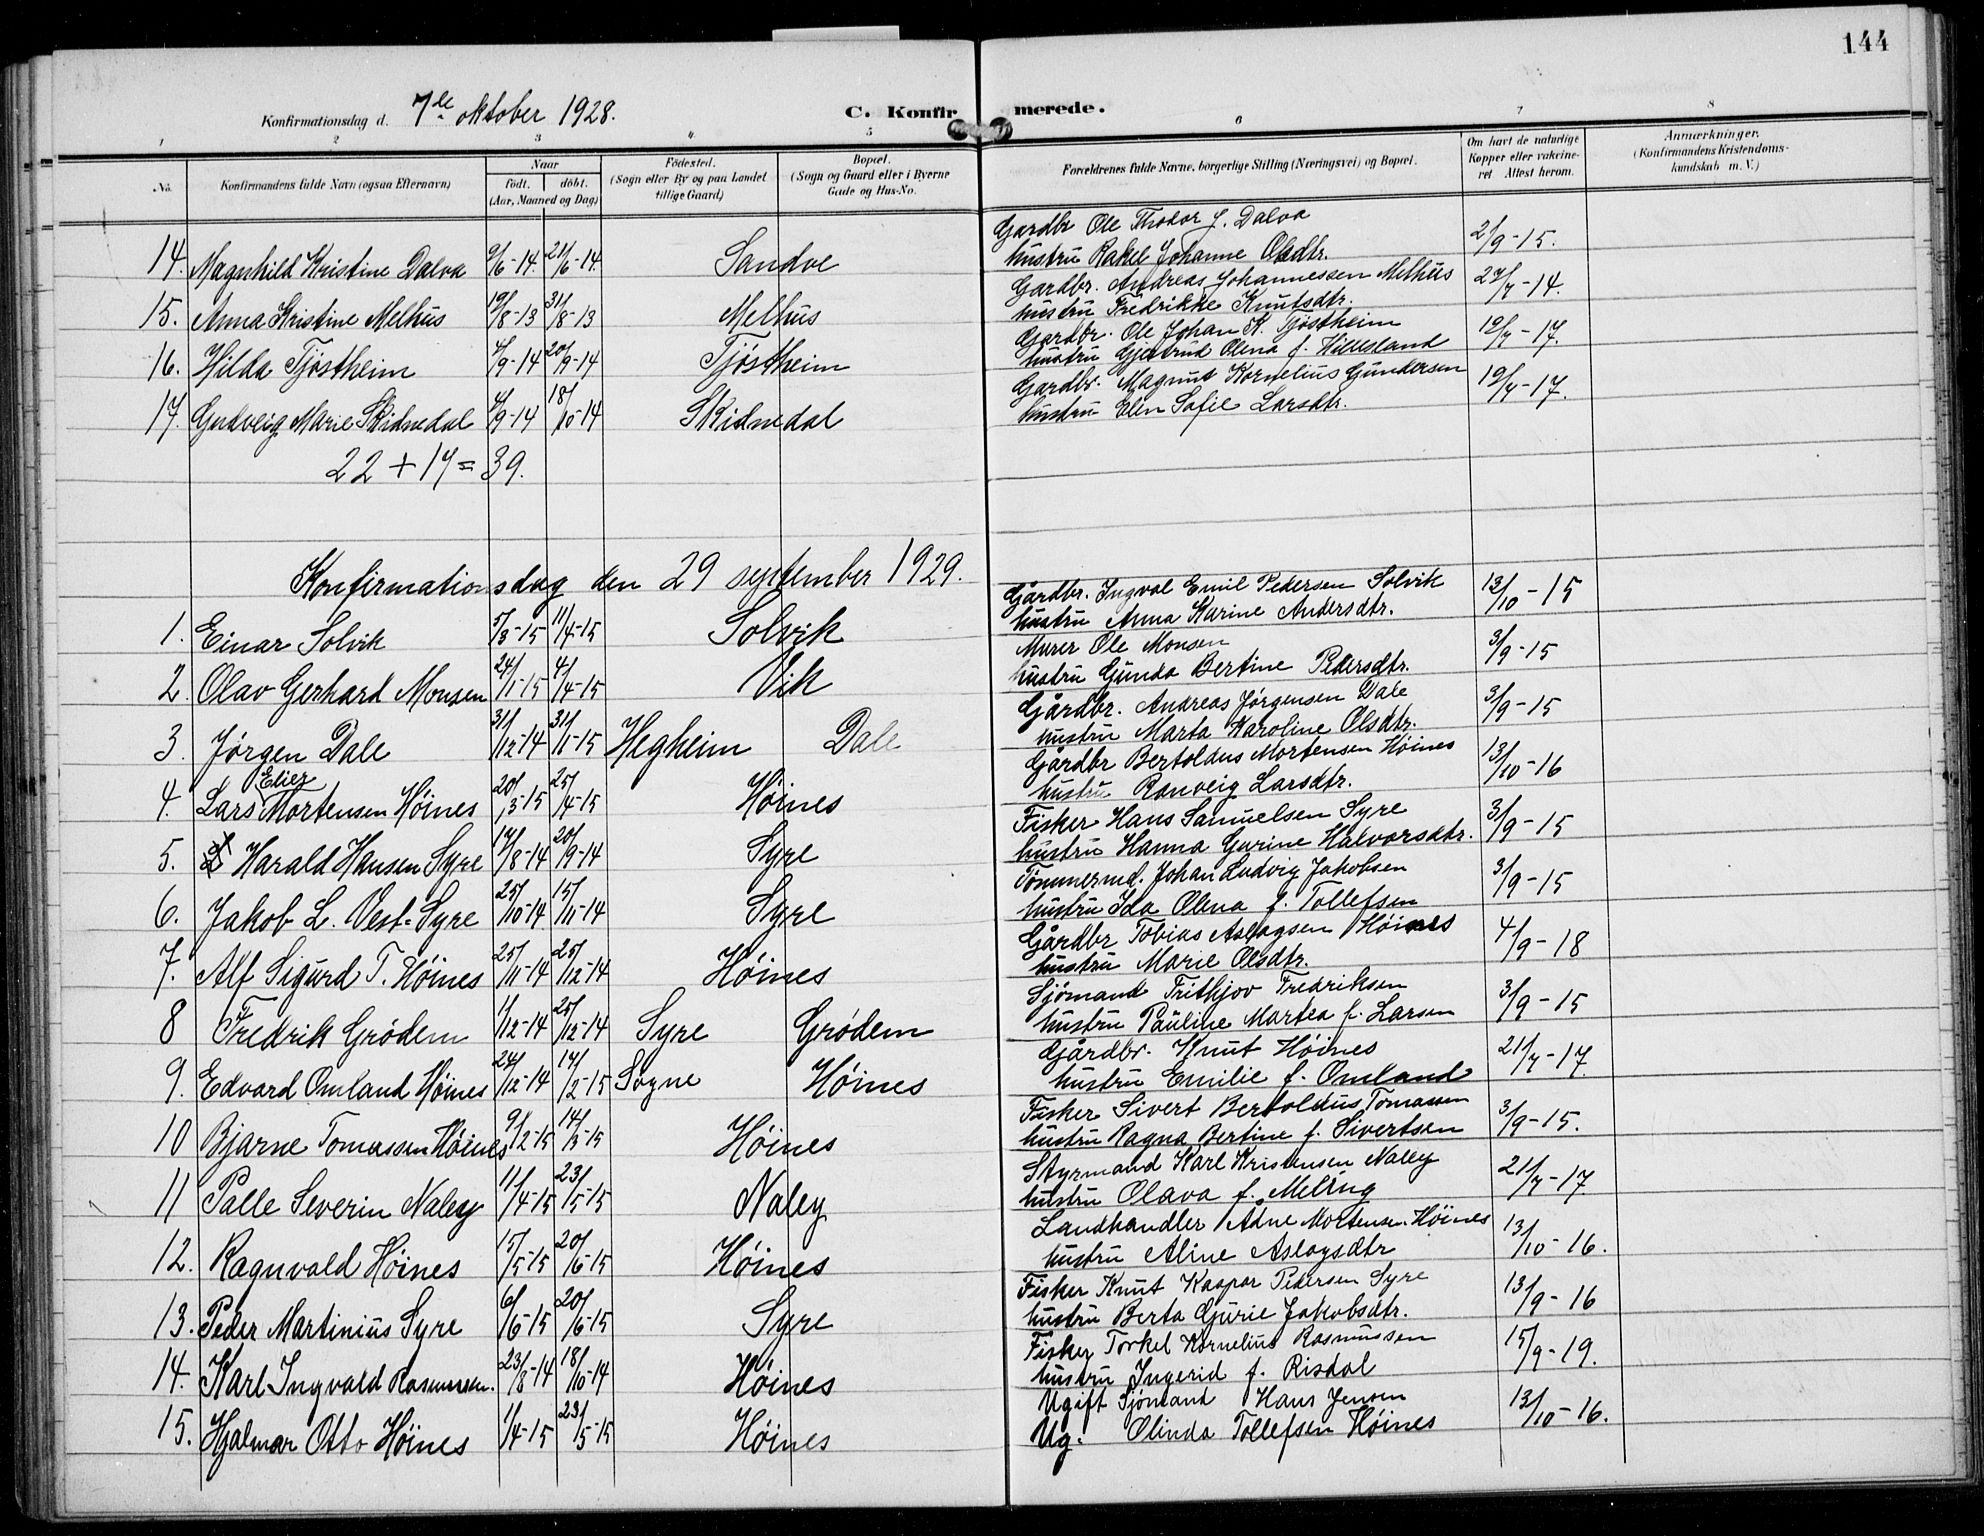 144
Konfirmationsdag d. 7de oktober 1928.
C. Konfirmerede.
1 2 3 4 5 6 7 8
No.
Konfirmandens fulde Navn (ogsaa Efternavn)
Naar
födt. döbt.
(Aar, Maaned og Dag)
Födested.
(Sogn eller By og paa Landet
tillige Gaard)
Bopæl.
(Sogn og Gaard eller i Byerne
Gade og Hus-No.
Forældrenes fulde Navne, borgerlige Stilling (Næringsvei) og Bopæl.
Om havt de naturlige
Kopper eller vakcine-
ret. Attest herom.
Anmærkninger.
(Konfirmandens Kristendoms-
kundskab m. V.)
14. Magnhild Kristine Dalva 9/6-14. 21/6-14. Sandve Gardbr Ole Thodor J. Dalva 2/9-15.
hustru Rakel Johanne Olsdtr.
15. Anna Kristine Melhus 19/8-13 31/8-13 Melhus Gardbr. Andreas Johannessen Melhus 27/7-14.
hustru Fredrikke Knutsdtr.
16. Hilda Tjøstheim 4/9-14 20/9-14 Tjøstheim Gardbr. Ole Johan K. Tjøstheim 19/7-17.
hustru Gjertrud Olena f. Hillesland
17. Gudveig Marie Skidnedal 4/9-14 18/10-14 Skidnedal Gardbr. Magnus Kornelius Gundersen 19/7-17.
hustru Elen Sofie Larsdtr.
22 + 17 = 39.
Konfirmationsdag den 29 september 1929.
1. Einar Solvik 5/3-15 11/4-15 Solvik Gårdbr. Ingval Emil Pedersen Solvik 13/10-15
hustru Anna Karine Andersdtr.
2. Olav Gerhard Monsen 24/1-15 4/4-15 Vik Murer Ole Monsen 3/9-15
hustru Gunda Bertine Pedersdtr.
3. Jørgen Dale 31/12-14 31/1-15 Hegheim Dale Gårdbr. Andreas Jørgensen Dale 3/9-15
hustru Marta Karoline Olsdtr.
4. Lars Elier Mortensen Høines 20/3-15 25/4-15 Høines Gårdbr Bertoldus Mortensen Høines 13/10-16
hustru Ranveig Larsdtr.
5. Harald Hansen Syre 17/8-14 20/9-14 Syre Fisker Hans Samuelsen Syre 3/9-15
hustru Hanna Gurine Halvorsdtr.
6. Jakob L. Vest-Syre 25/10-14 15/11-14 Syre Tømmermd. Johan Ludvig Jakobsen 3/9-15
hustru Ida Olena f. Tollefsen
7. Alf Sigurd T. Høines 25/11-14 25/12-14 Høines Gårdbr Tobias Aslagsen Høines 4/9-18
hustru Marie Olsdtr.
8 Fredrik Grødem 1/12-14 25/12-14 Syre Grødem Sjømand Fritkjov Fredriksen 3/9-15
hustru Pauline Martea f. Larsen
9. Edvard Omland Høines 24/12-14 14/2-15 Søgne Høines Gårdbr. Knut Høines 21/7-17
hustru Emilie f. Omland
10 Bjarne Tomassen Høines 9/2-15 14/3-15 Høines Fisker Sivert Bertoldus Tomassen 3/9-15.
hustru Ragna Bertine f. Sivertsen
11 Palle Severin Naley 11/4-15 23/5-15 Naley Styrmand Karl Kristensen Naley 21/7-17
hustru Olava f. Meling
12. Ragnvald Høines 15/5-15 20/6-15 Høines Landhandler Adne Mortensen Høines 13/10-16.
hustru Aline Aslagsdtr
13. Peder Martinius Syre 6/6-15 20/6-15 Syre Fisker Knut Kaspar Pedersen Syre 13/9-16
hustru Berta Gurie Jakobsdtr.
14. Karl Ingvald Rasmussen. 23/8-14 18/10-14 Høines Fisker Torkel Kornelius Rasmussen 15/9-19.
hustru Ingerid f. Risdal
15. Hjalmar Otto Høines 1/4-15 23/5-15 Høines Ugift Sjømand Hans Jensen 13/10-16.
Ug. Olinda Tollefsen Høines